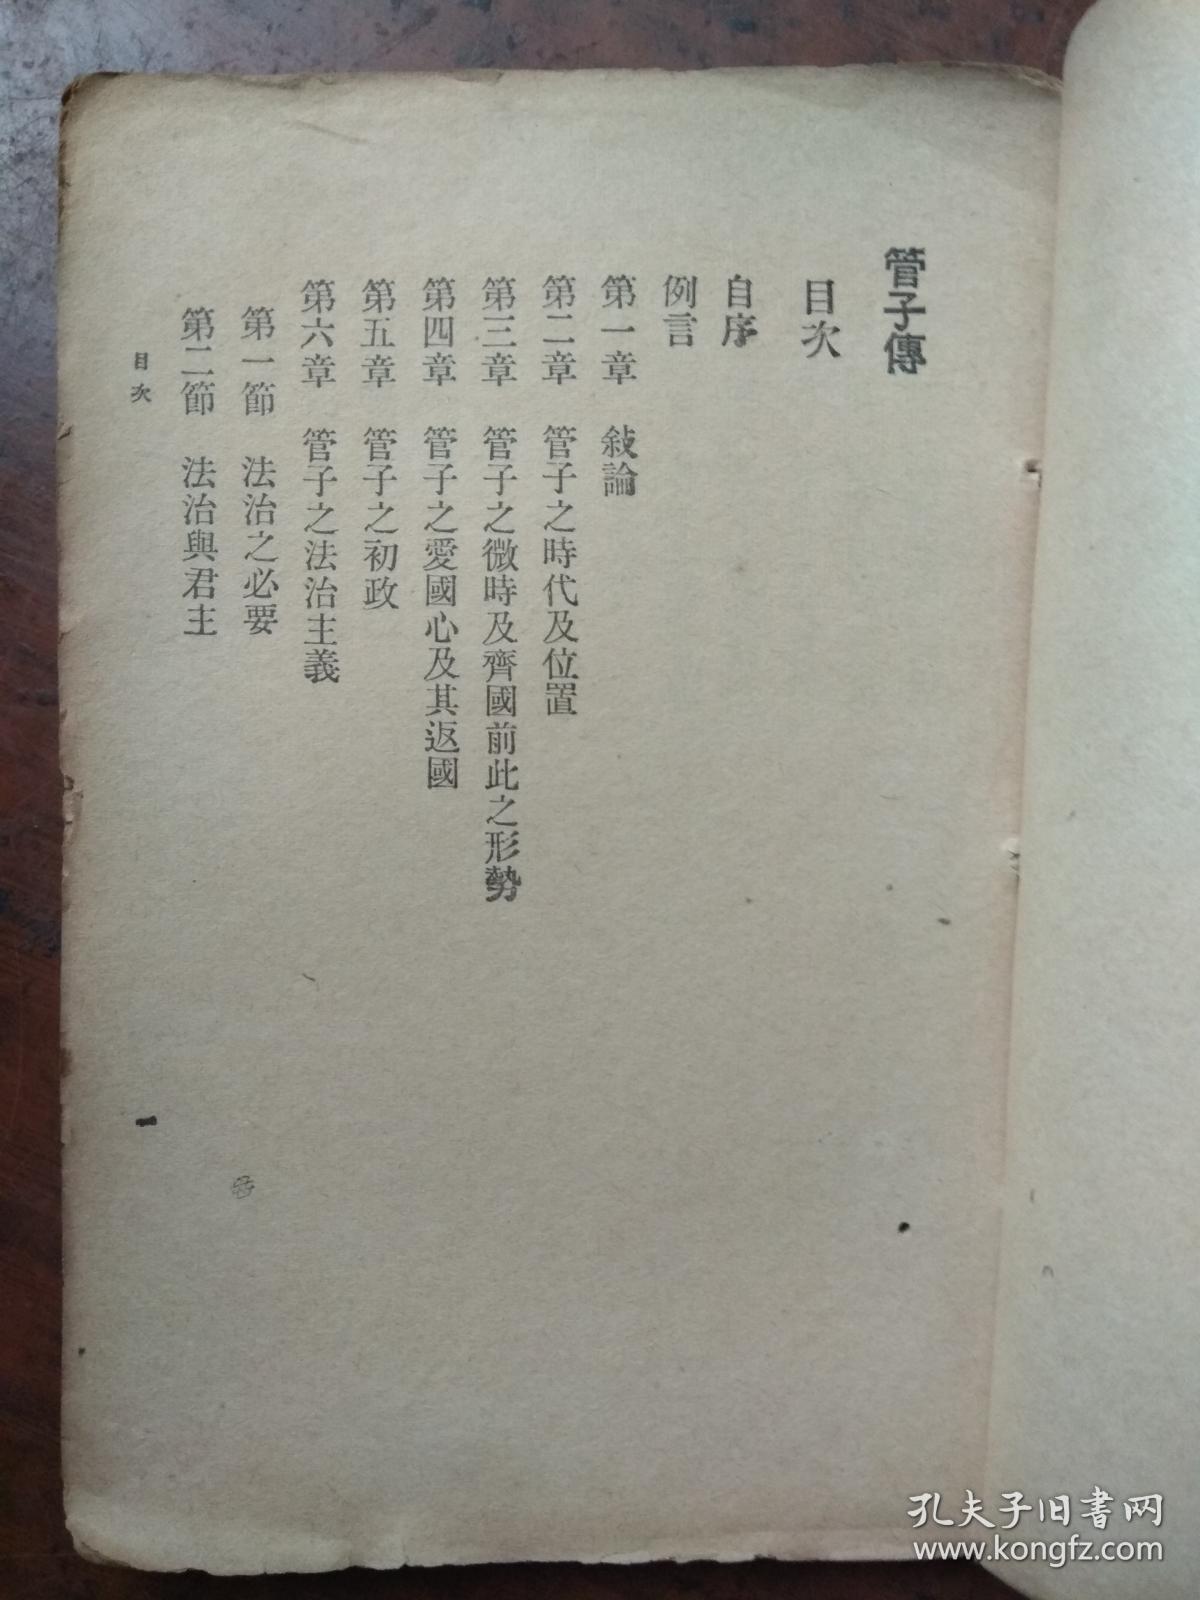 管子傳
目次
自序
例言
第一章　敍論
第二章　管子之時代及位置
第三章　管子之微時及齊國前此之形勢
第四章　管子之愛國心及其返國
第五章　管子之初政
第六章　管子之法治主義
第一節　法治之必要
第二節　法治與君主
目次
一
孔夫子旧书网
www.kongfz.com